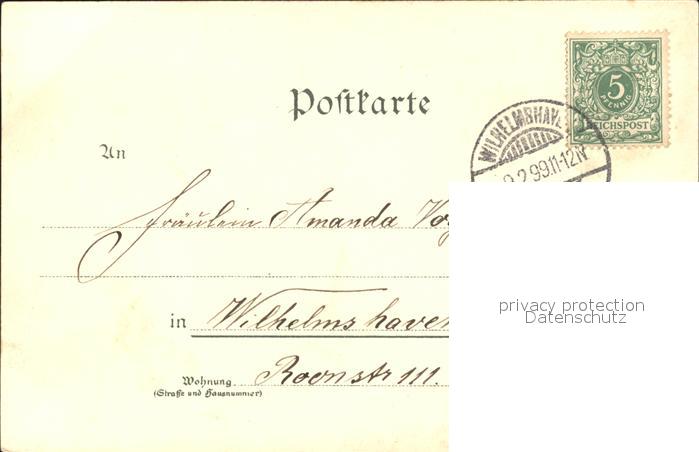 Postkarte
5
PFENNIG
REICHSPOST
WILHELMSHAV
9.2.99.11-12N
An
Fräulein Amanda
in Wilhelmshaven
Wohnung Roonstr 111.
(Straße und Hausnummer)
privacy protection
Datenschutz